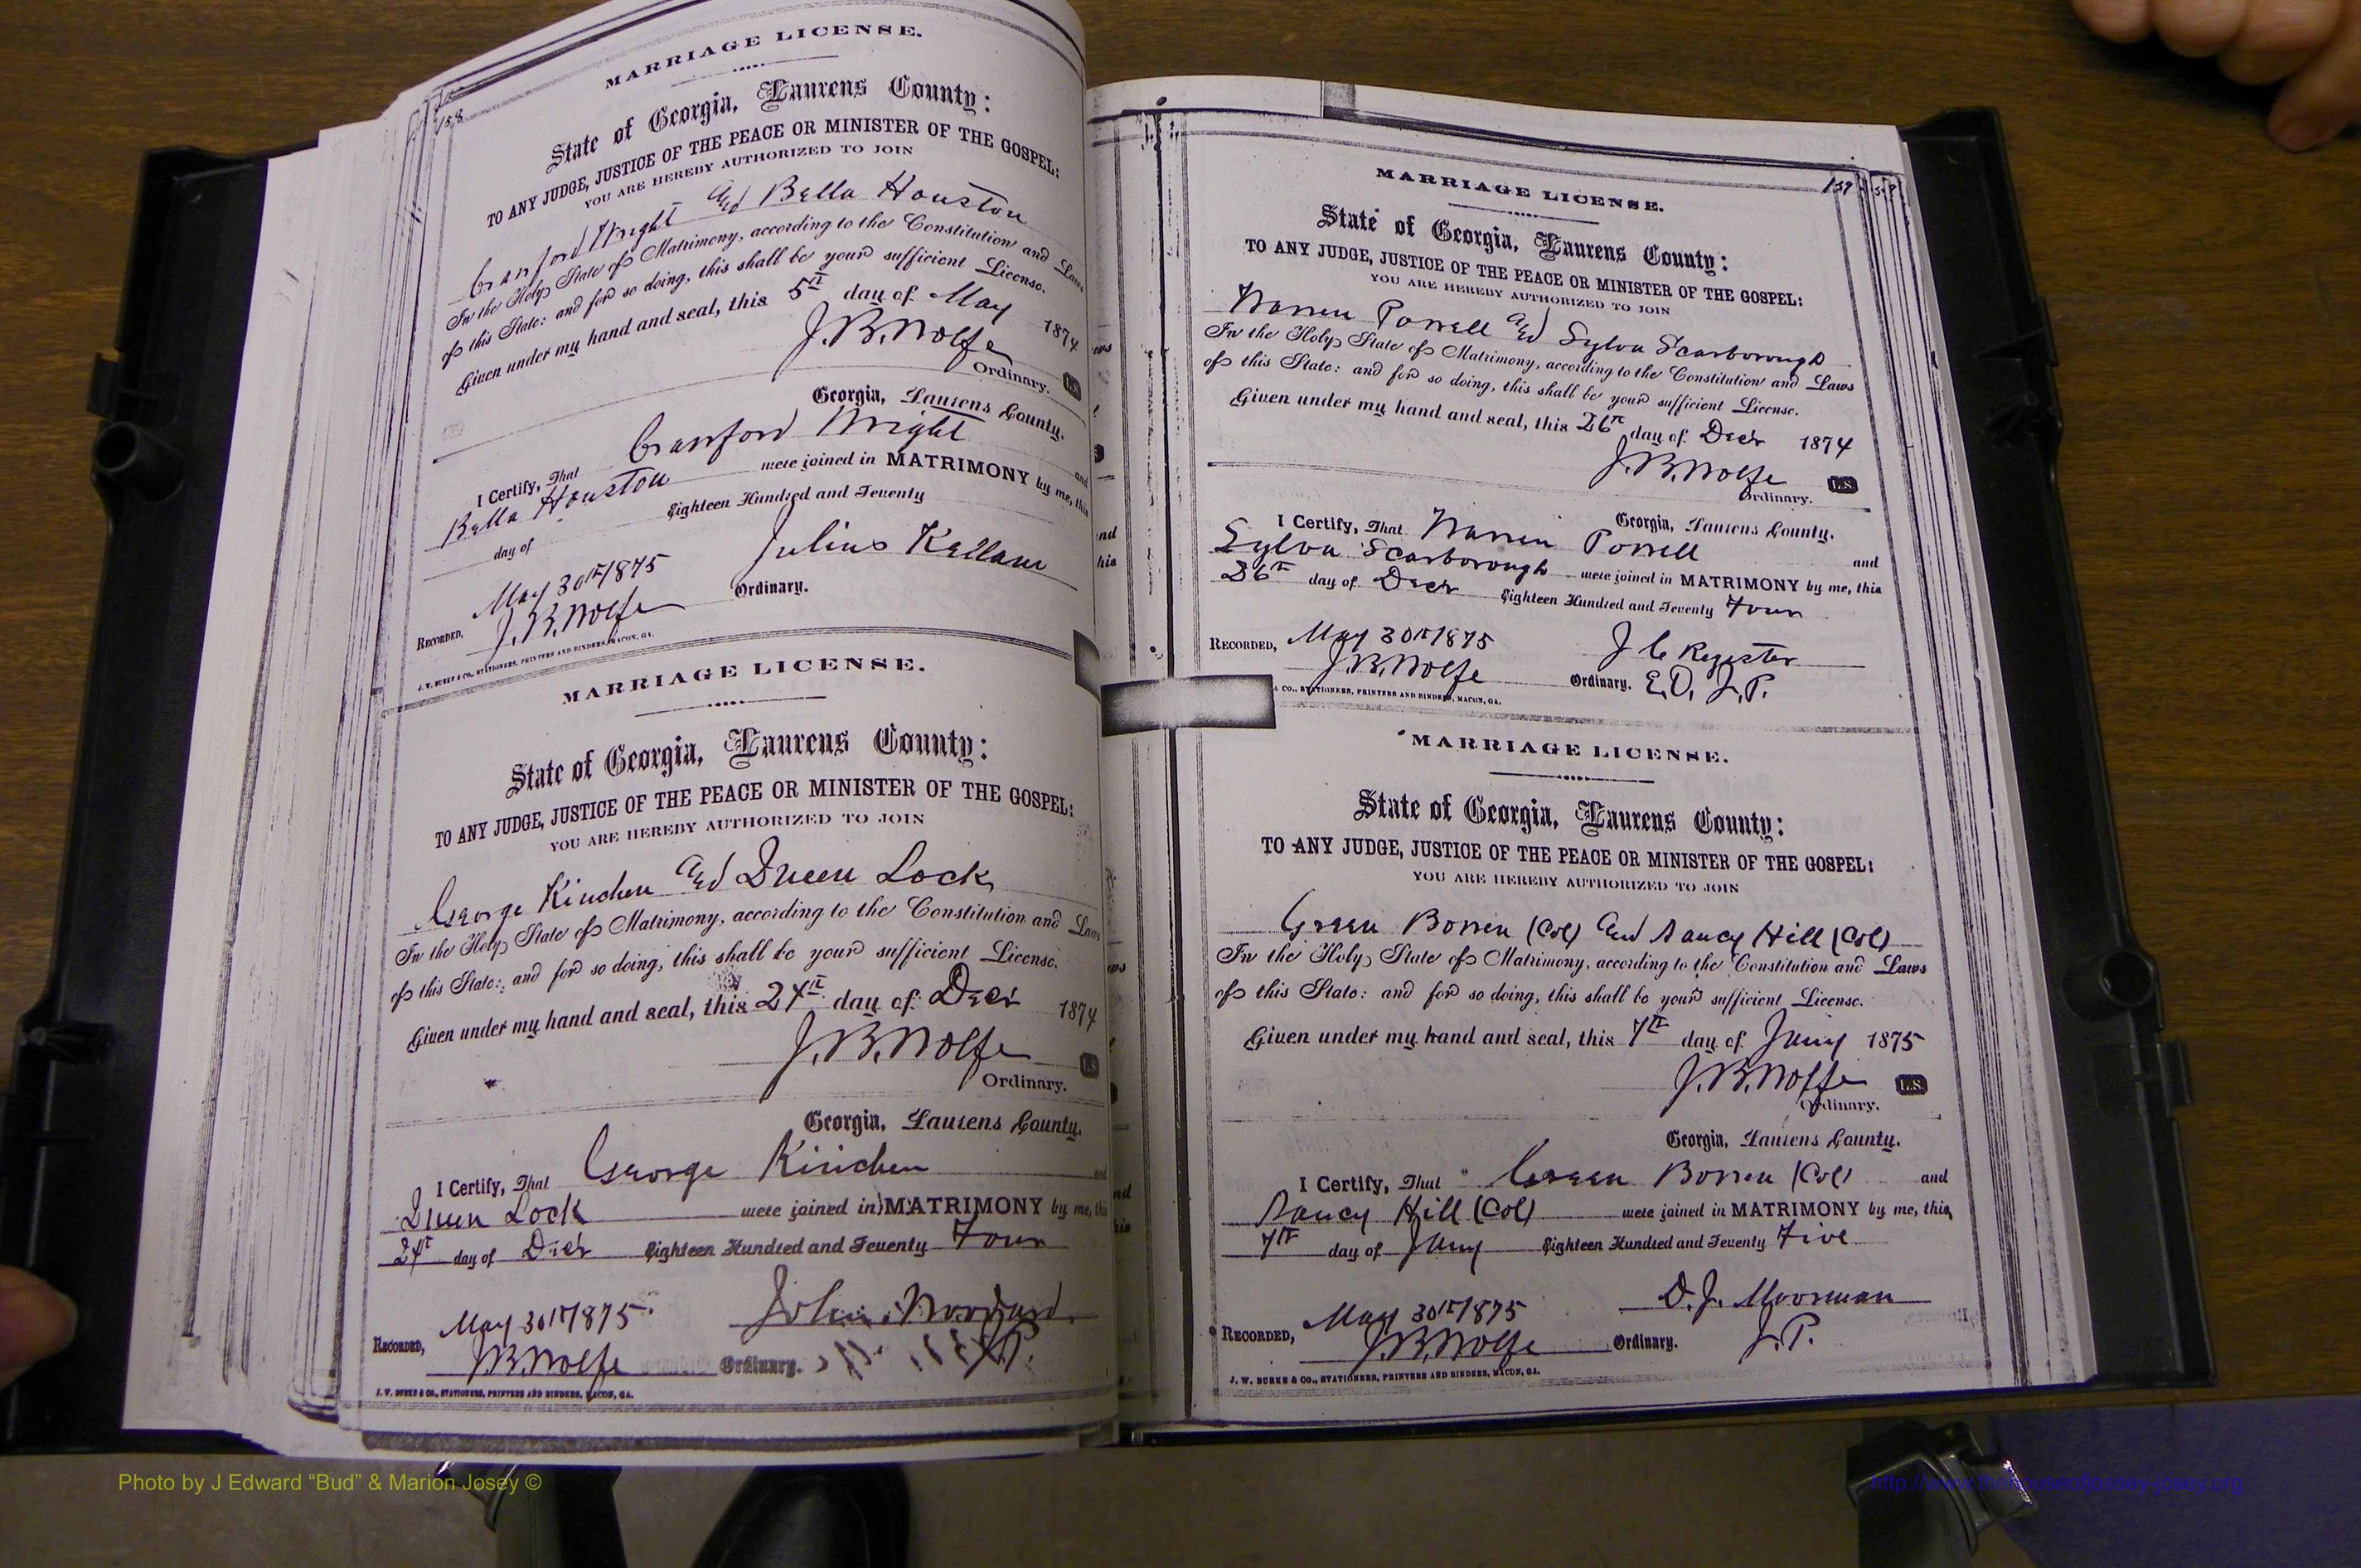 158
MARRIAGE LICENSE.
State of Georgia, Laurens County:
TO ANY JUDGE, JUSTICE OF THE PEACE OR MINISTER OF THE GOSPEL:
YOU ARE HEREBY AUTHORIZED TO JOIN
Cranford Wright and Bella Houston
In the Holy State of Matrimony, according to the Constitution and Laws
of this State: and for so doing, this shall be your sufficient License.
Given under my hand and seal, this 5th day of May 1874
J.B. Wolfe
Ordinary. L.S.
Georgia, Laurens County.
I Certify, That Cranford Wright and
Bella Houston were joined in MATRIMONY by me, this
day of Eighteen Hundred and Seventy
Julius Kellam
RECORDED, May 30th 1875
J.B. Wolfe Ordinary.
J. W. BURKE & CO., STATIONERS, PRINTERS AND BINDERS, MACON, GA.
MARRIAGE LICENSE.
State of Georgia, Laurens County:
TO ANY JUDGE, JUSTICE OF THE PEACE OR MINISTER OF THE GOSPEL:
YOU ARE HEREBY AUTHORIZED TO JOIN
George Kinchen and Queen Lock
In the Holy State of Matrimony, according to the Constitution and Laws
of this State: and for so doing, this shall be your sufficient License.
Given under my hand and seal, this 24th day of Decr 1874
J.B. Wolfe
L.S.
Ordinary.
Georgia, Laurens County.
I Certify, That George Kinchen and
Queen Lock were joined in MATRIMONY by me, this
24th day of Decr Eighteen Hundred and Seventy Four
John Woodard
RECORDED, May 30th 1875.
J.B. Wolfe Ordinary. J.P.
J. W. BURKE & CO., STATIONERS, PRINTERS AND BINDERS, MACON, GA.
159
MARRIAGE LICENSE.
State of Georgia, Laurens County:
TO ANY JUDGE, JUSTICE OF THE PEACE OR MINISTER OF THE GOSPEL:
YOU ARE HEREBY AUTHORIZED TO JOIN
Warren Powell and Sylva Scarborough
In the Holy State of Matrimony, according to the Constitution and Laws
of this State: and for so doing, this shall be your sufficient License.
Given under my hand and seal, this 26th day of Decr 1874
J.B. Wolfe L.S.
Ordinary.
Georgia, Laurens County.
I Certify, That Warren Powell and
Sylva Scarborough were joined in MATRIMONY by me, this
26th day of Decr Eighteen Hundred and Seventy Four
RECORDED, May 30th 1875 J C Register
J.B. Wolfe Ordinary. E.O. J.P.
& CO., STATIONERS, PRINTERS AND BINDERS, MACON, GA.
MARRIAGE LICENSE.
State of Georgia, Laurens County:
TO ANY JUDGE, JUSTICE OF THE PEACE OR MINISTER OF THE GOSPEL:
YOU ARE HEREBY AUTHORIZED TO JOIN
Green Bowen (Col) and Nancy Hill (Col)
In the Holy State of Matrimony, according to the Constitution and Laws
of this State: and for so doing, this shall be your sufficient License.
Given under my hand and seal, this 7th day of Jany 1875
J.B. Wolfe L.S.
Ordinary.
Georgia, Laurens County.
I Certify, That Green Bowen (Col) and
Nancy Hill (Col) were joined in MATRIMONY by me, this
7th day of Jany Eighteen Hundred and Seventy Five
D.J. Moorman
RECORDED, May 30th 1875
J.B. Wolfe Ordinary. J.P.
J. W. BURKE & CO., STATIONERS, PRINTERS AND BINDERS, MACON, GA.
Photo by J Edward “Bud” & Marion Josey ©